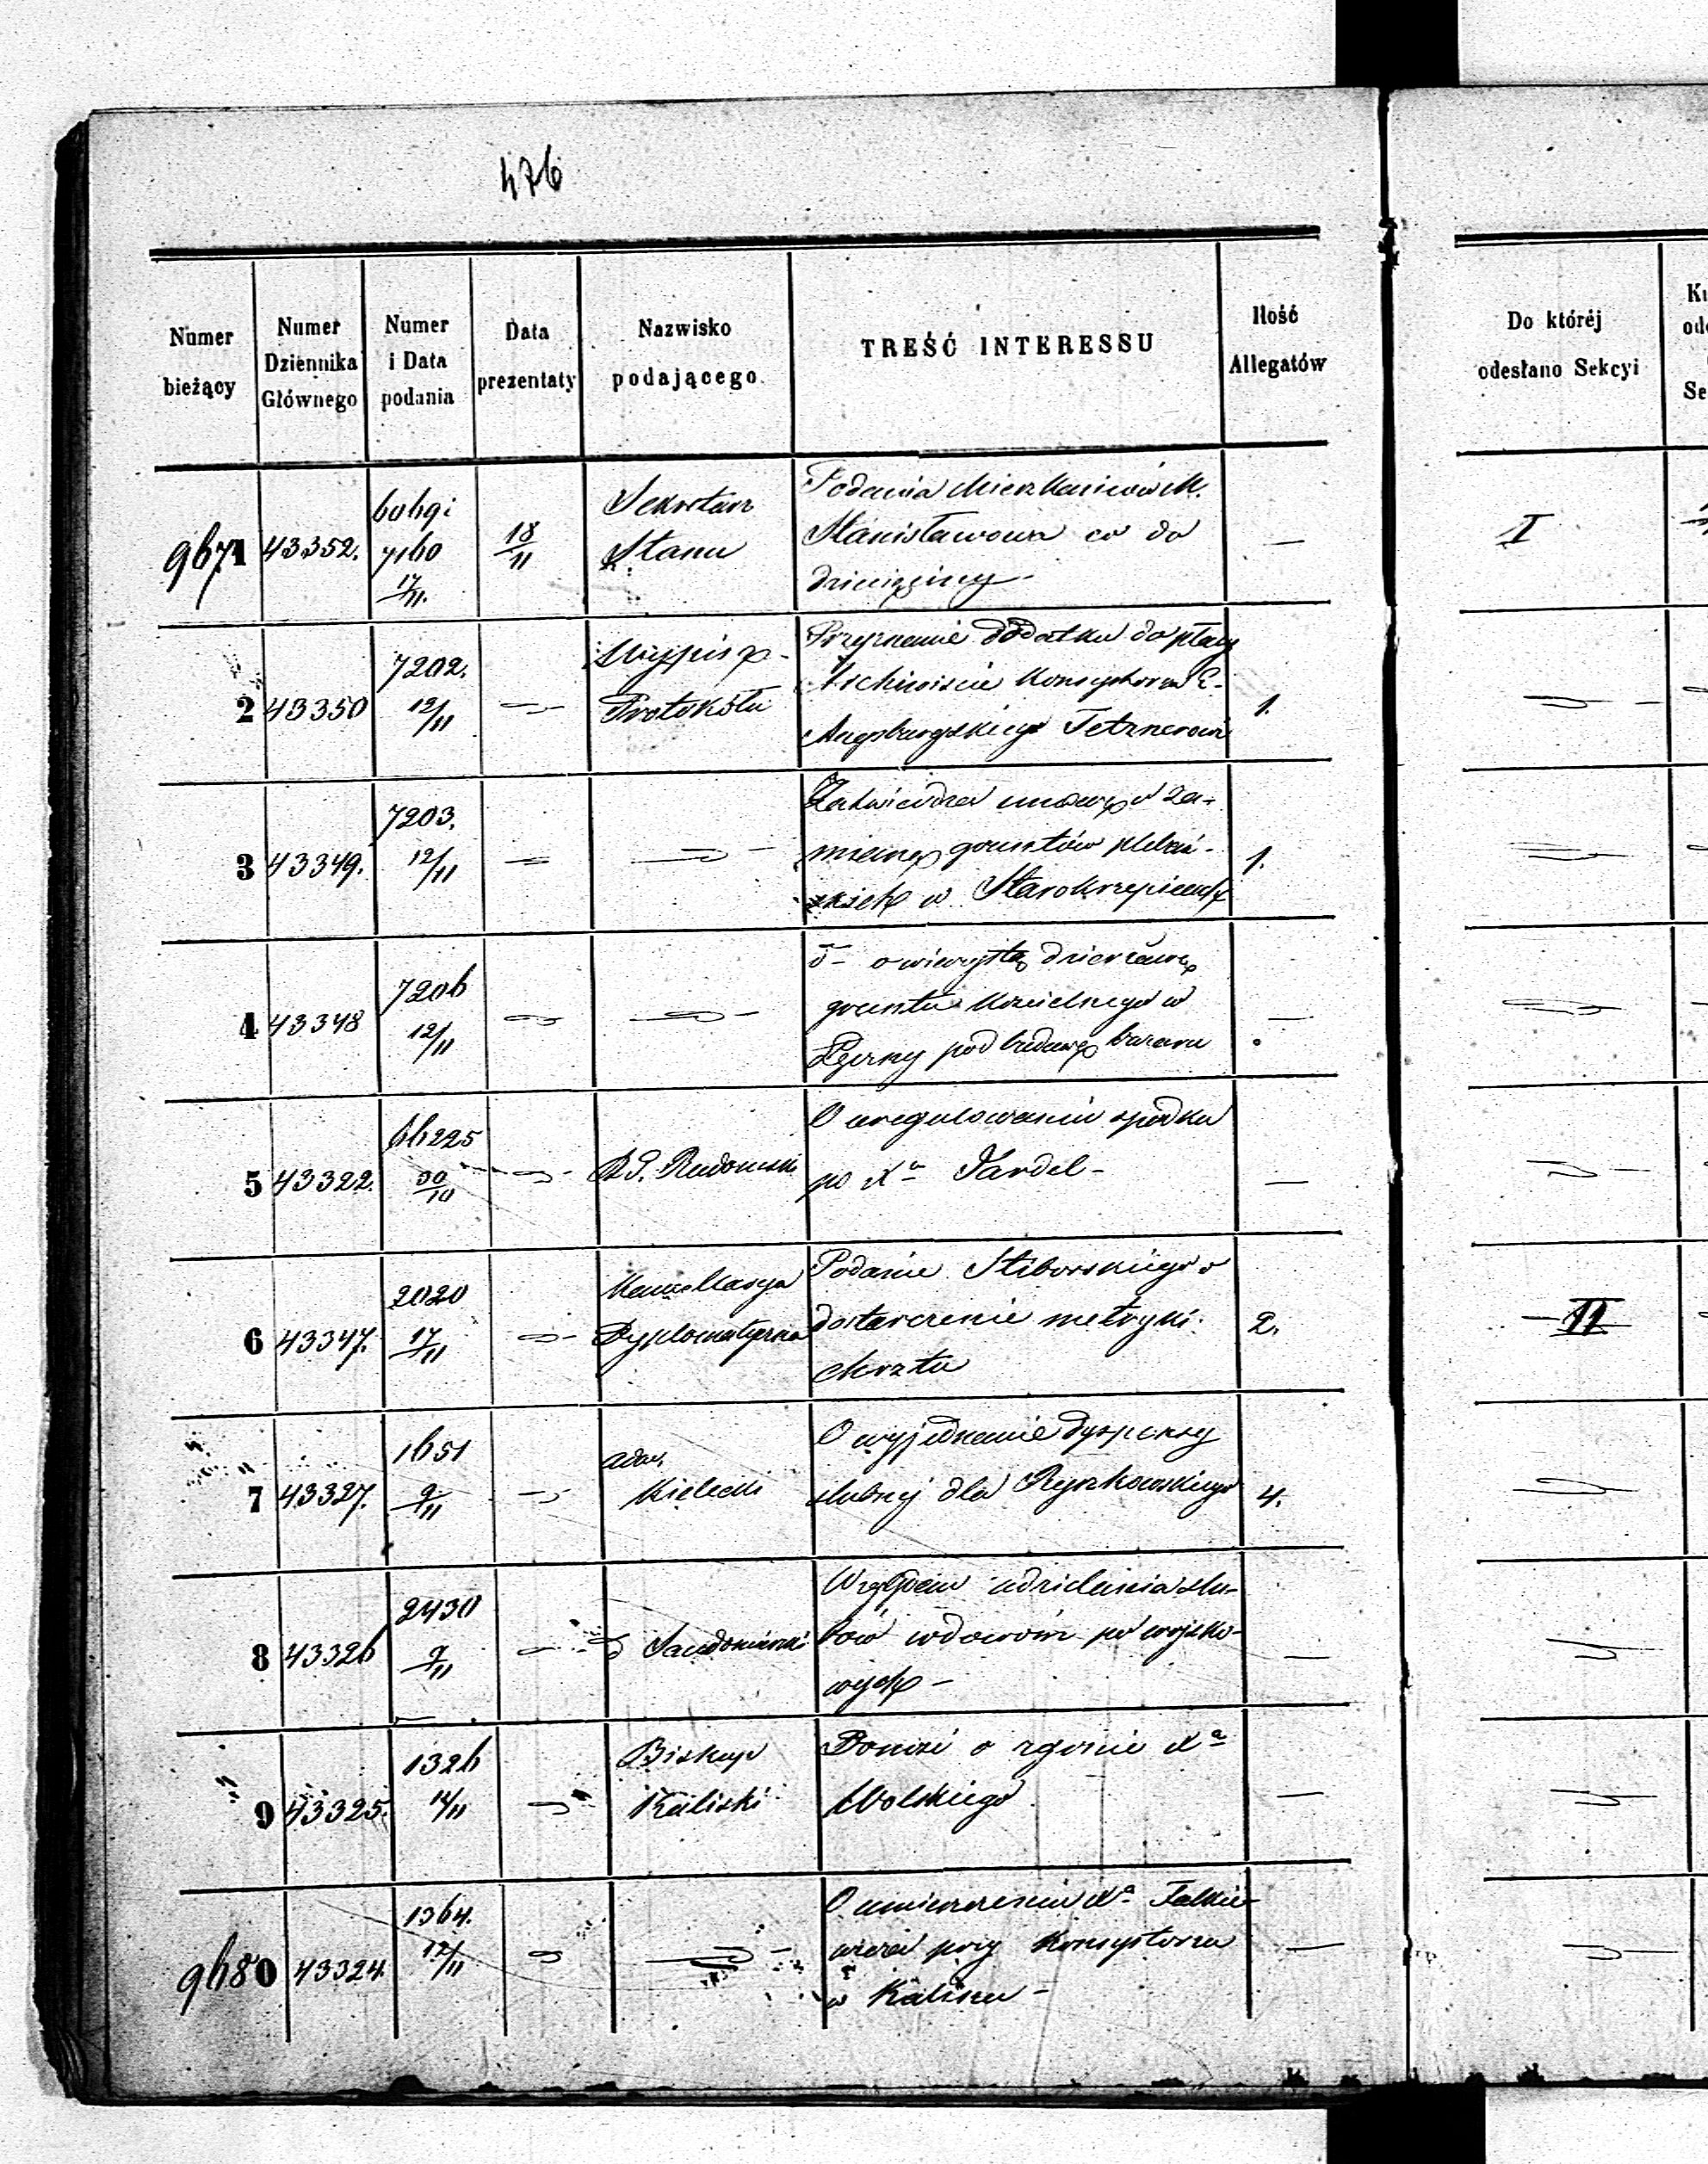 476
Numer bieżący
Numer Dziennika Głównego
Numer i Data podania
Data prezentaty
Nazwisko podającego
TREŚĆ INTERESSU
Ilość Allegatów
Do któréj odesłano Sekcyi
9671 43352. 7160 17/11. 18/11 Sekretarz Stanu
Podania Mieszkańców M.
Stanisławowa co do
dziesięciny —
I
2 43350 7202. 12/11 Wypis z Protokółu
Przyznanie dodatku do płacy
Archiwiście Konsystorza E.
Augsburgskiego Tetznerowi
1.
3 43349. 7203. 12/11
Zatwierdza umowę o za-
mianę gruntów plebań-
skich w Starokrzepicach
1.
4 43348 7206 12/11
o wieczystą dzierżawę
gruntu kościelnego w
pod budowę bazaru
5 43322. 66225 30/10 R. G. Radomski
O uregulowaniu spadku
po Xu Jardel —
6 43347. 2020 17/11 Kancellarya Dyplomatyczna
Podanie Stiborskiego o
dostarczenie metryki
chrztu
2.
II
7 43327. 1651 9/11 adm. Kielecki
O wyjednanie dyspensy
ślubnej dla Ryszkowskiego
4.
8 43326 2430 9/11 Sandomierski
Względem udzielania ślu-
bów wdowom po wojsko-
wych —
9 43325. 1326 14/11 Biskup Kaliski
Donosi o zgonie Xa
Wolskiego
9680 43324. 1364. 12/11
O umieszczeniu Xa Falkie-
wicza przy Konsystorzu
w Kaliszu —